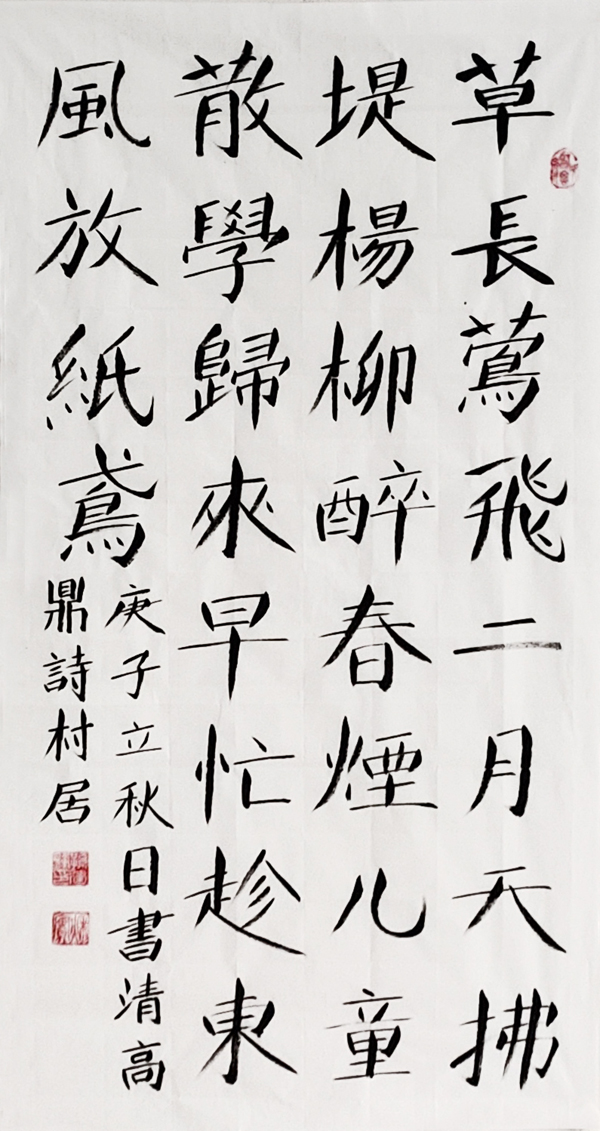 草長鶯飛二月天拂
堤楊柳醉春煙儿童
散學歸來早忙趁東
風放紙鳶
庚子立秋日書清高
鼎詩村居